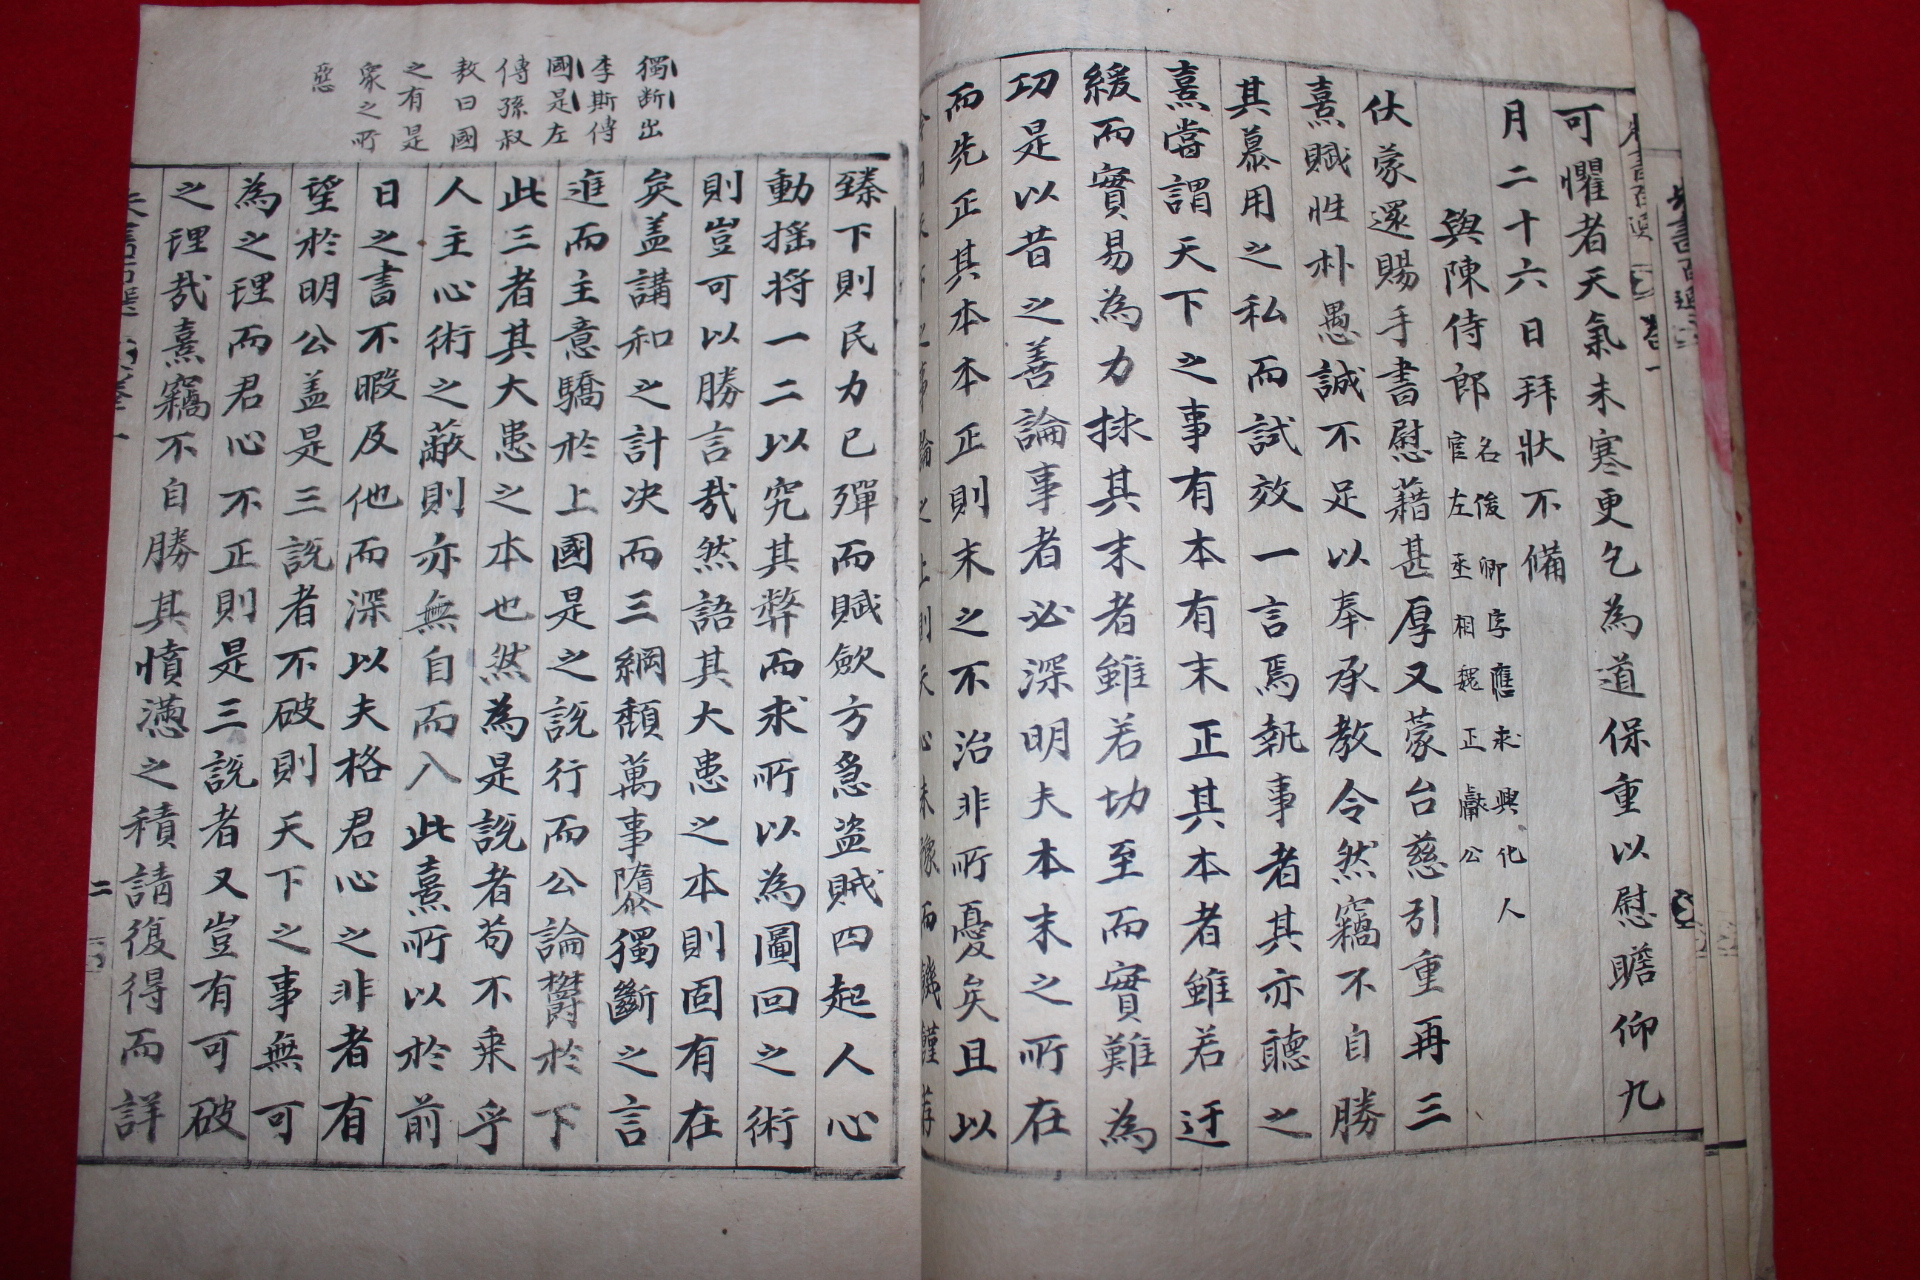 可懼者天氣未寒更乞為道保重以慰瞻仰九
月二十六日拜狀不備
與陳侍郎
名俊卿字應求興化人
官左丞相魏正獻公
伏蒙還賜手書慰藉甚厚又蒙台慈引重再三
熹賦性朴愚誠不足以奉承教令然竊不自勝
其慕用之私而試效一言焉執事者其亦聽之
熹嘗謂天下之事有本有末正其本者雖若迂
緩而實易為力捄其末者雖若切至而實難為
功是以昔之善論事者必深明夫本末之所在
而先正其本本正則末之不治非所憂矣且以
獨斷出
李斯傳
國是左
傳孫叔
敖曰國
之有是
衆之所
惡
臻下則民力已殫而賦歛方急盗賊四起人心
動揺將一二以究其弊而求所以為圖回之術
則豈可以勝言㢤然語其大患之本則固有在
矣盖講和之計决而三綱頽萬事隳獨斷之言
進而主意驕於上國是之説行而公論鬱於下
此三者其大患之本也然為是説者苟不乗乎
人主心術之蔽則亦無自而入此熹所以於前
日之書不暇及他而深以夫格君心之非者有
望於明公盖是三説者不破則天下之事無可
為之理而君心不正則是三説者又豈有可破
之理㢤熹竊不自勝其憤懣之積請復得而詳
二